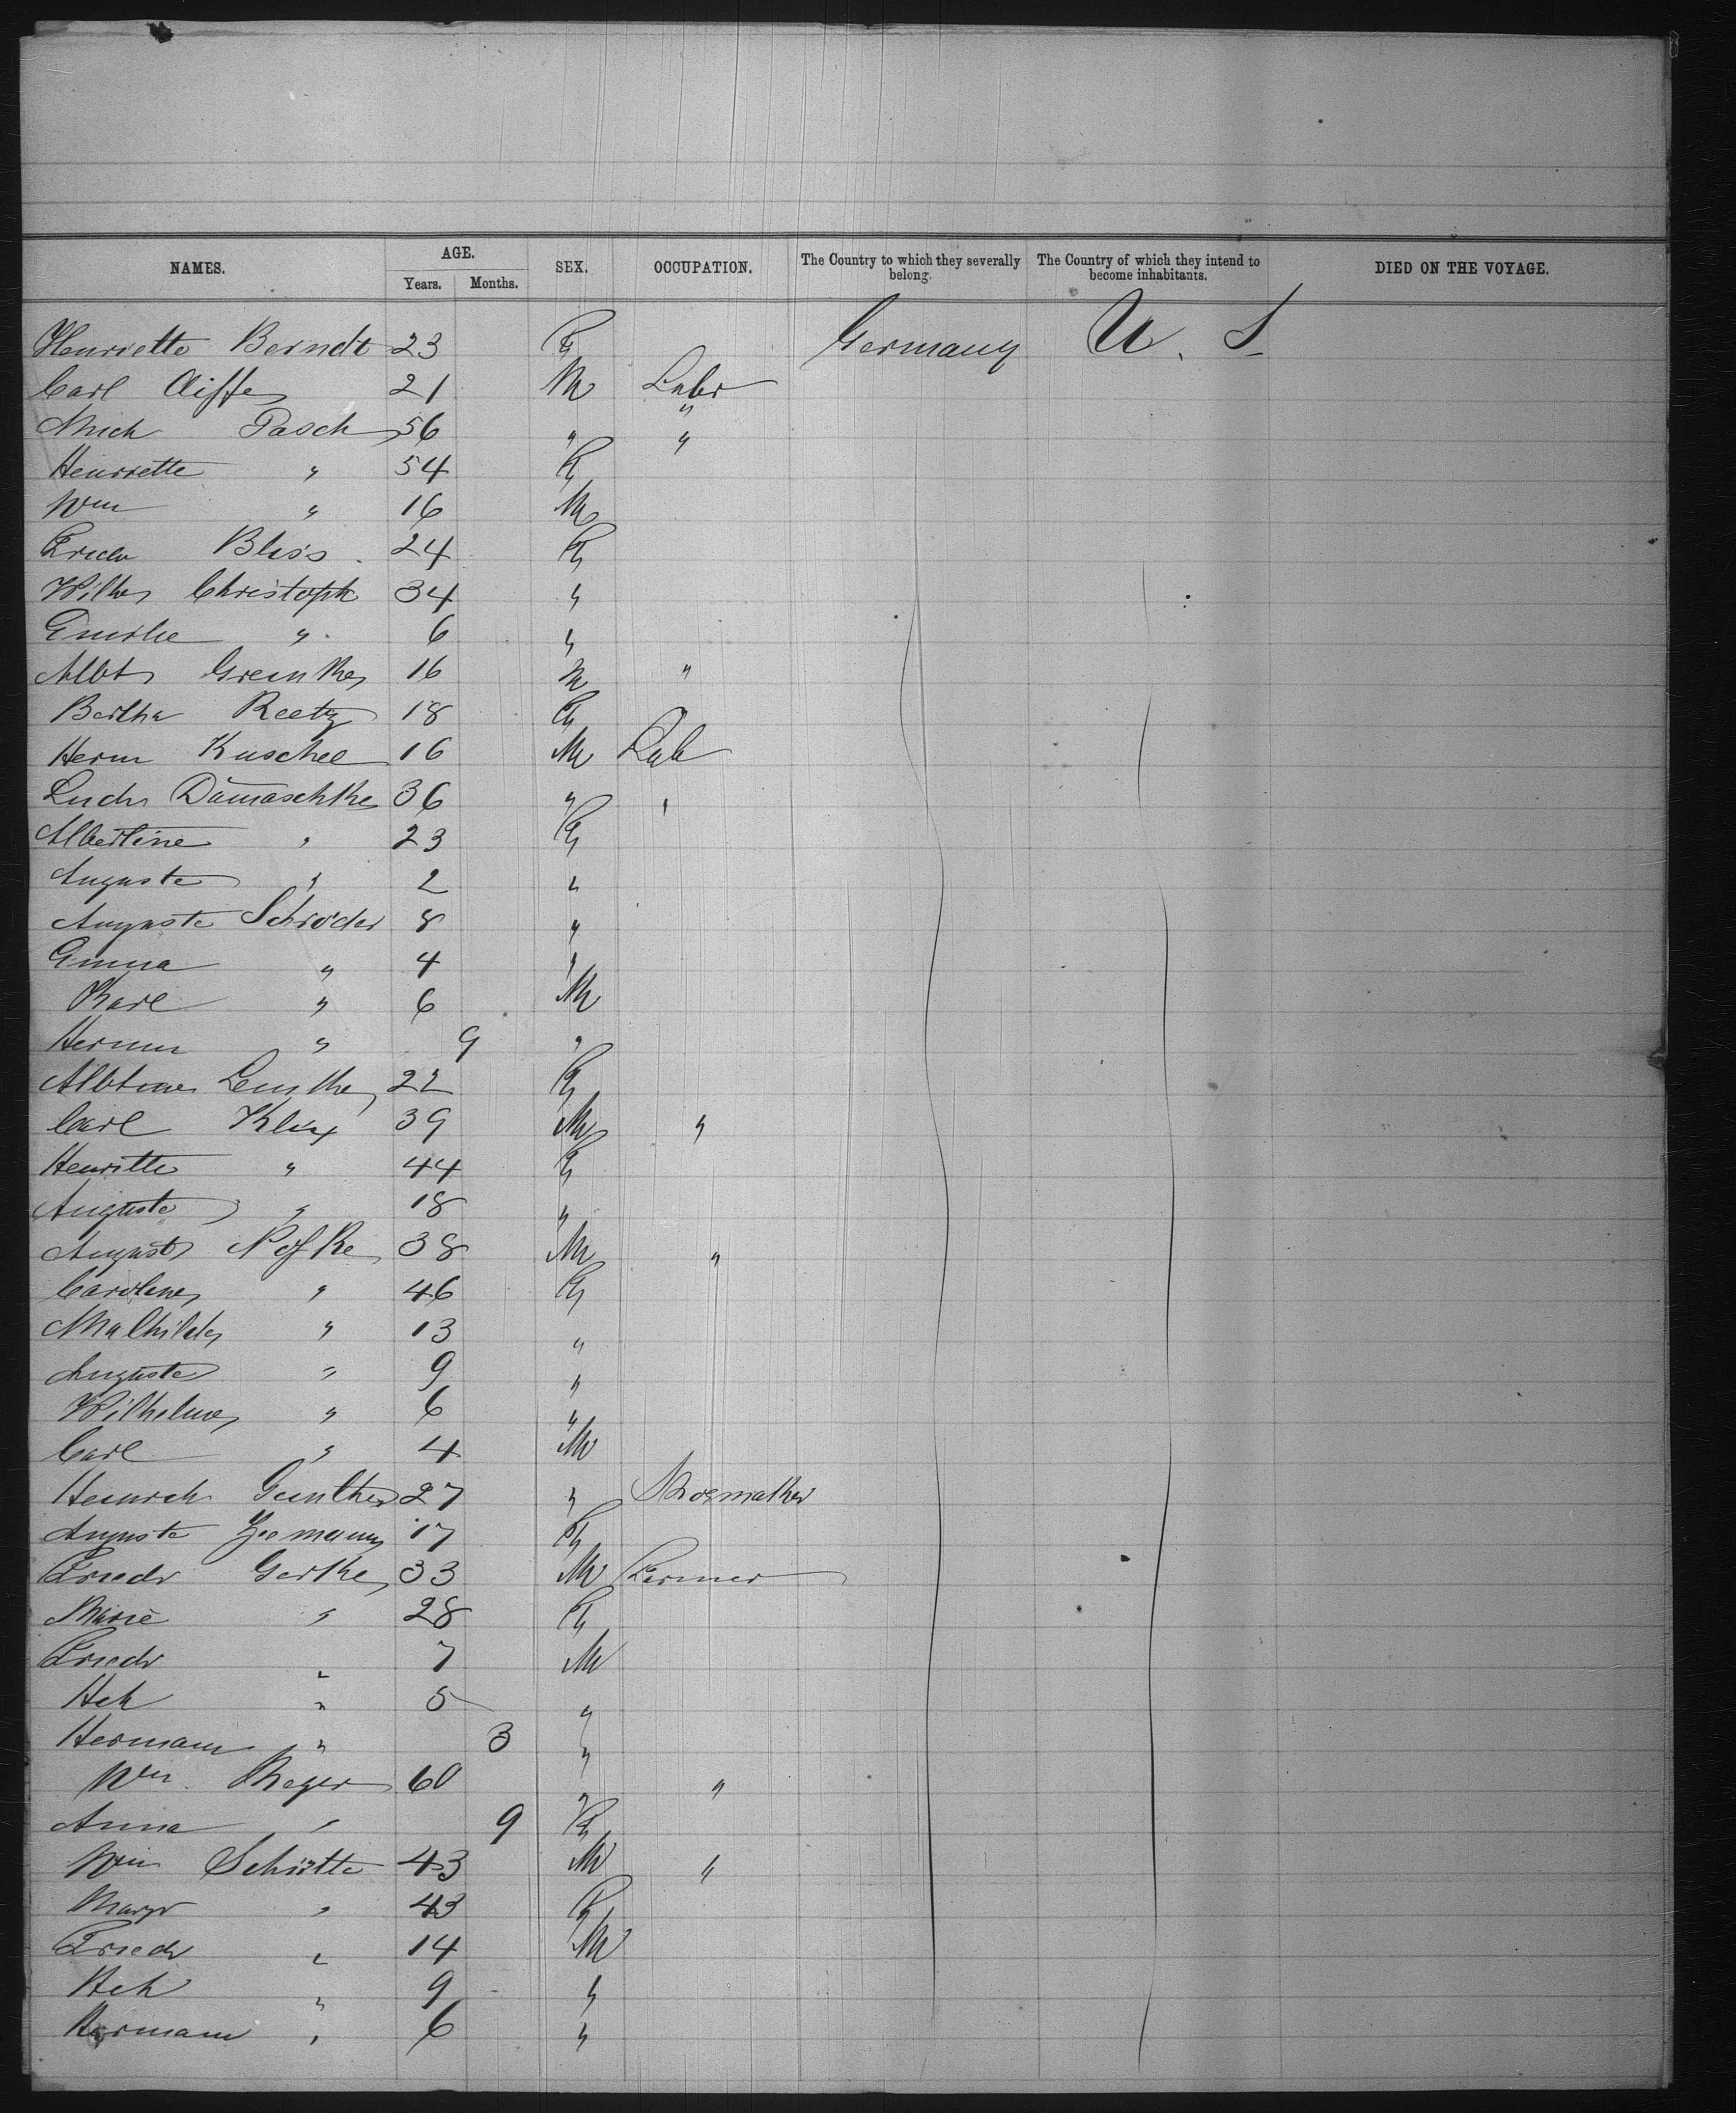 NAMES. AGE. Years. Months. SEX. OCCUPATION. The Country to which they severally belong. The Country of which they intend to become inhabitants. DIED ON THE VOYAGE.
Henriette Berndt 23 F Germany U. S.
Carl 21 M Labr
Mich Pasch 56 " "
Henriette " 54 F
Wm " 16 M
Friedr Bliss 24 F
Wilhe Christoph 34 "
Emilie " 6 "
Albt 16 M "
Bertha Reetz 18 F
Herm Kuschel 16 M Lab
Ludw Damaschke 36 " "
Albertine " 23 F
Auguste " 2 "
Auguste Schröder 8 "
Emma " 4 "
Karl " 6 M
Hermn " 9 "
Albtine Lemke 22 F
Carl 39 M "
Henritte " 44 F
Auguste " 18 "
August Nofke 38 M "
Caroline " 46 F
Mathilde " 13 "
Auguste " 9 "
Wilhelme " 6 "
Carl " 4 M
Heinrich Günther 27 " Shoemaker
Auguste Zeemann 17 F
Friedr Gerke 33 M Farmer
Marie " 28 F
Friedr " 7 M
Hch " 5 "
Hermann " 3 "
Wm Kayer 60 " "
Anna " 9 F
Wm Schütte 43 M "
Mary " 43 F
Friedr " 14 M
Hch " 9 "
Hermann " 6 "